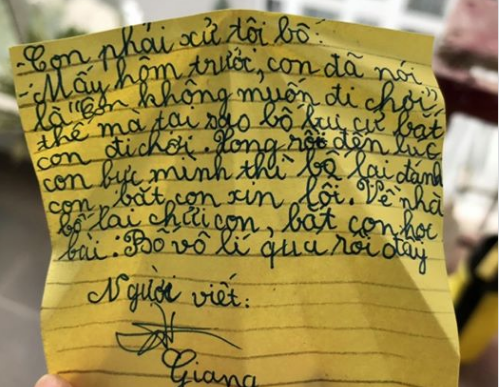 -Con phải xử tội bố:
-Mấy hôm trước, con đã nói
là "con không muốn đi chơi"
thế mà tại sao bố bu cứ bắt
con đi chơi. Xong rồi đến lúc
con bực mình thì bố lại đánh
con, bắt con xin lỗi. Về nhà
bố lại chửi con, bắt con học
bài. Bố vô lí quá rồi đấy
Người viết:
Giang